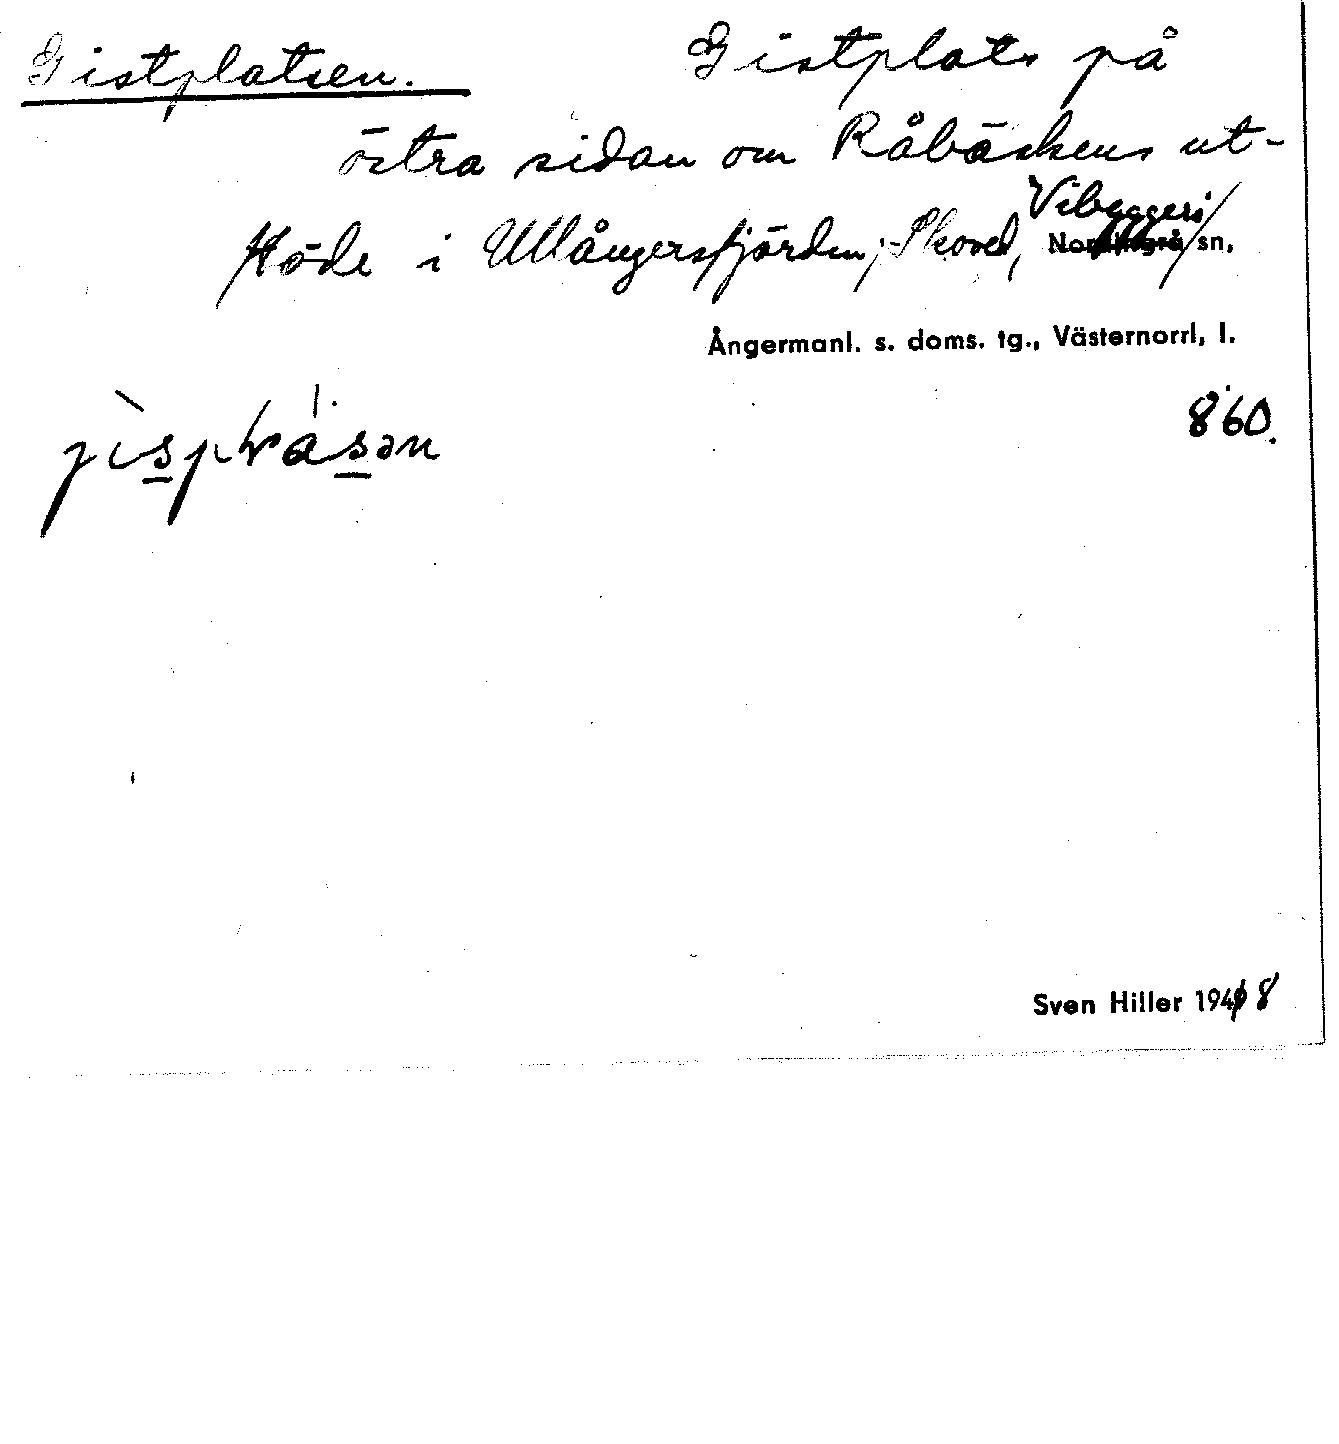 Gistplatsen. Gistplats på
östra sidan om Råbäckens ut-
flöde i Ullångersfjärden, Skoved, Vibyggerå sn,
Ångermanl. s. doms. tg., Västernorrl, l.
860.
Sven Hiller 1948